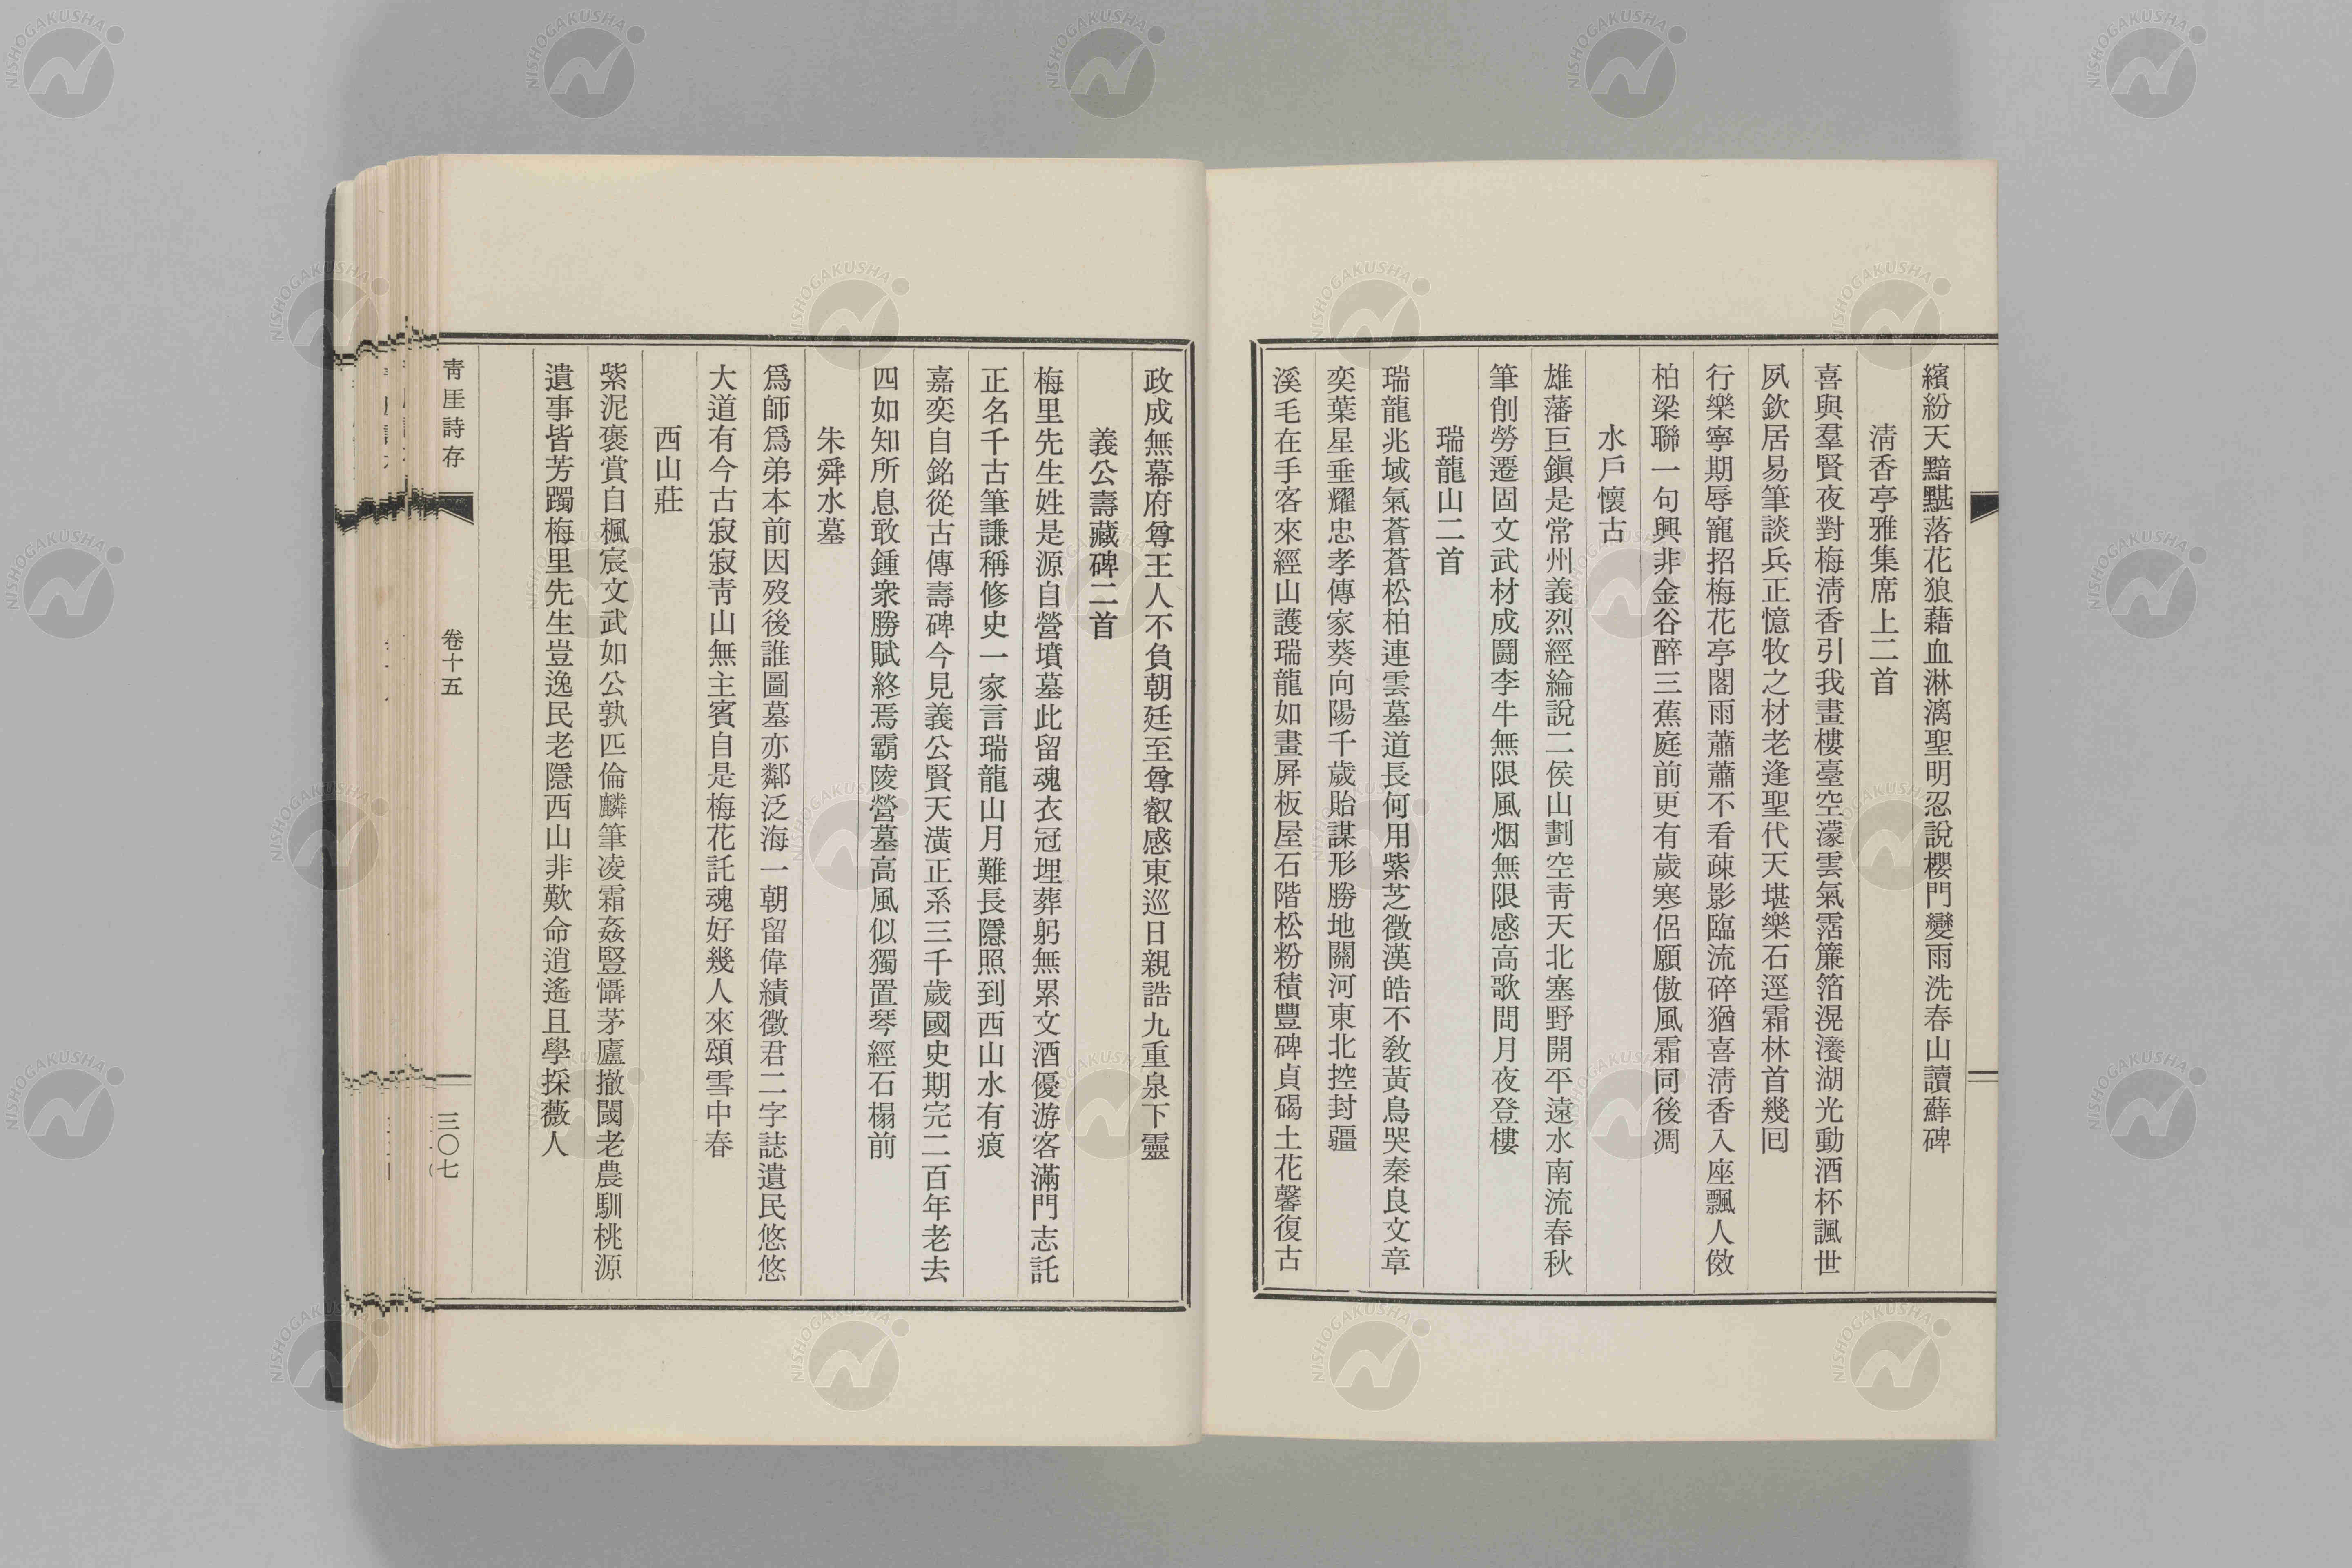 繽紛天黯黮落花狼藉血淋漓聖明忍說櫻門變雨洗春山讀蘇碑
淸香亭雅集席上二首
喜與羣賢夜對梅淸香引我畫樓臺空濛雲氣霑簾箔滉瀁湖光動酒杯諷世
夙欽居易筆談兵正憶牧之材老逢聖代天堪樂石逕霜林首幾囘
行樂寧期辱寵招梅花亭閣雨蕭蕭不看疎影臨流碎猶喜淸香入座飄人傚
柏梁聯一句興非金谷醉三蕉庭前更有歲寒侶願傲風霜同後凋
水戶懷古
雄藩巨鎭是常州義烈經綸說二侯山劃空靑天北塞野開平遠水南流春秋
筆削勞遷固文武材成鬪李牛無限風烟無限感高歌問月夜登樓
瑞龍山二首
瑞龍兆域氣蒼蒼松柏連雲墓道長何用紫芝徵漢皓不敎黃鳥哭秦良文章
奕葉星垂耀忠孝傳家葵向陽千歲貽謀形勝地關河東北控封疆
溪毛在手客來經山護瑞龍如畫屛板屋石階松粉積豐碑貞碣土花馨復古
政成無幕府尊王人不負朝廷至尊叡感東巡日親誥九重泉下靈
義公壽藏碑二首
梅里先生姓是源自營墳墓此留魂衣冠埋葬躬無累文酒優游客滿門志託
正名千古筆謙稱修史一家言瑞龍山月難長隱照到西山水有痕
嘉奕自銘從古傳壽碑今見義公賢天潢正系三千歲國史期完二百年老去
四如知所息敢鍾衆勝賦終焉霸陵營墓高風似獨置琴經石榻前
朱舜水墓
爲師爲弟本前因歿後誰圖墓亦鄰泛海一朝留偉績徵君二字誌遺民悠悠
大道有今古寂寂靑山無主賓自是梅花託魂好幾人來頌雪中春
西山莊
紫泥褒賞自楓宸文武如公孰匹倫麟筆凌霜姦豎懾茅廬撤閾老農馴桃源
遺事皆芳躅梅里先生豈逸民老隱西山非歎命逍遙且學採薇人
靑厓詩存
卷十五
三〇七
NISHOGAKUSHA